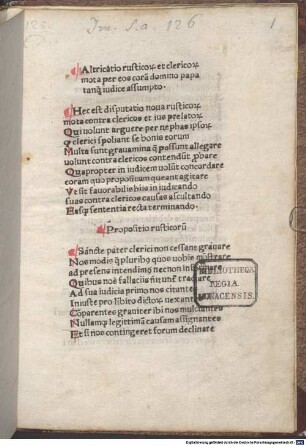 Inc. s. a. 126
1
Altricatio rusticoꝝ et clericoꝝ
mota per eos corā domino papa
tanq̃ iudice assumpto.
Hec est disputatio noua rusticoꝝ
mota contra clericos et ius prelatoꝝ
Qui uolunt arguere per nephas ipsoꝝ
q̃ clerici spoliant se bonis eorum
Multa sunt grauamina q̃ possunt allegare
uolunt contra clericos contendūt ꝓbare
Quapropter in iudicem uolūt concordare
coram quo propositum queant agitare
Vt sit fauorabilis his in iudicando
suas contra clericos causas ascultando
Easq̃ sententia recta terminando.
Propositio rusticorū
Sancte pater clerici non cessant grauare
Nos modis q̃ pluribꝰ quos uobis mōstrare
ad presens intendimꝰ nec non
Quibus nos fallaciis niunt tradiare
Ad sua iudicia primo nos citantes
Iniuste pro libito dictoꝝ uexantes
Coparentes grauiter ibi nos mulctantes
Nullamq̃ legittimā causam assignantes
Et si nos contingeret forum declinare
BIBLIOTHECA
REGIA
MONACENSIS.